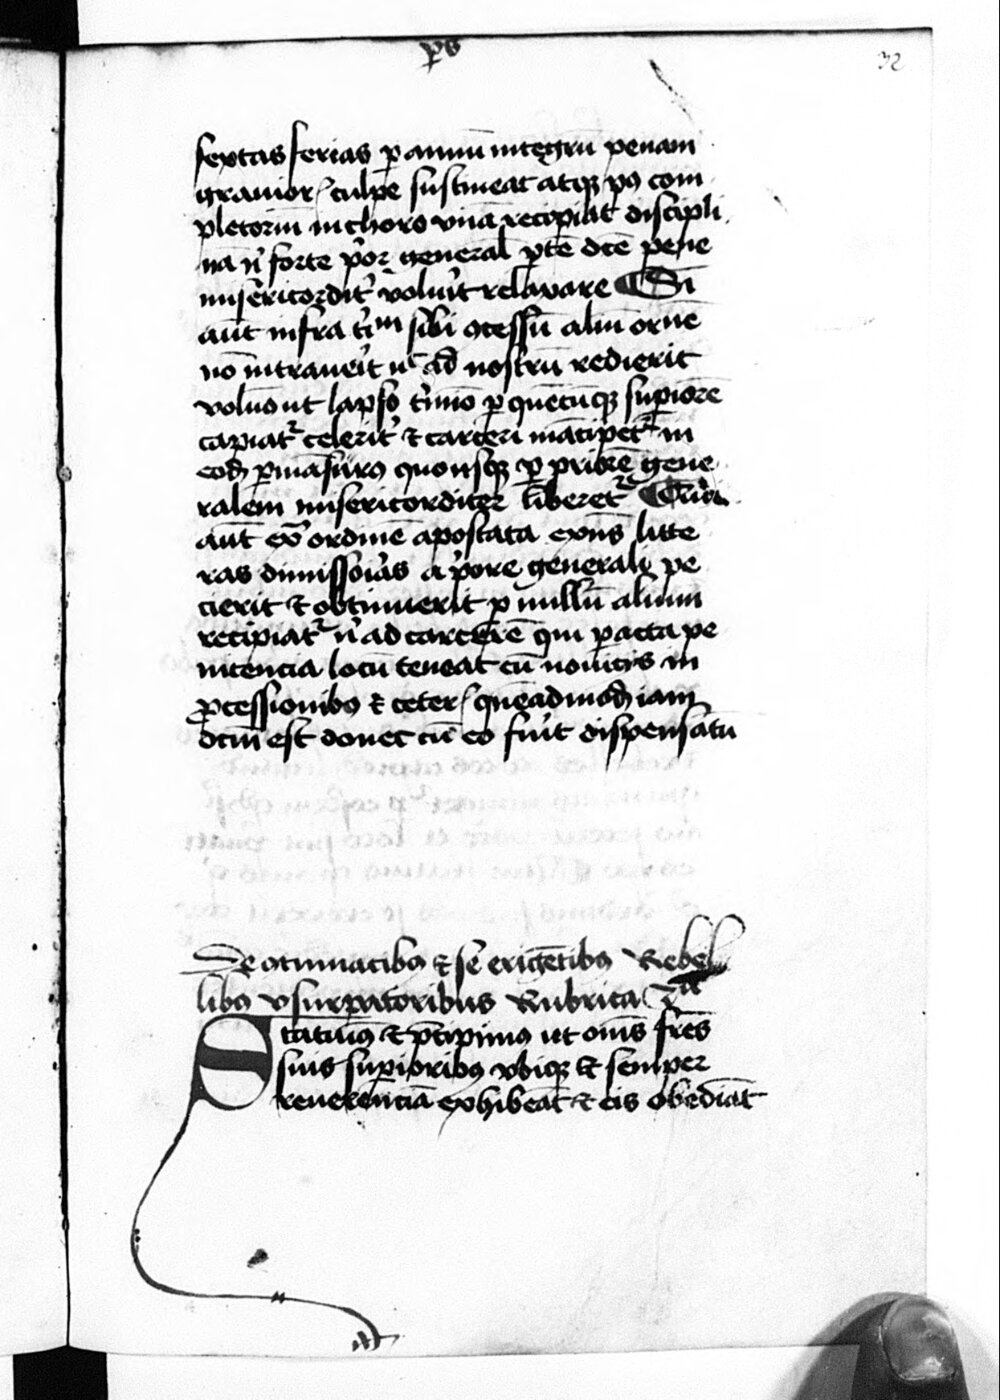 ps
32
sextas ferias p annū integrū penam
grauior culpe sustineat atqz pꝰ com
pletoriū in choro vnā recipiat discipli
nā n̄ forte p̄or general p̄te dc̄e pene
misericordit̉ volu̓it relaxare ¶ Si
aūt infra t̓im sibi ꝯcessū aliū ordinē
nō intraue̓it ul̓ ad nostrū redierit
volūo ut lapso t̓mīo p quēcūqz supiorē
capiatᷣ celerit̓ ⁊ carceri mācipetᷣ in
eod̄ pmāsurꝰ quousqz p priorē gene
ralem misericorditer liberetᷣ
aūt ex̄ ordinē apostata exn̄s litte
ras dimissoīas a p̓ore generali pe
cierit ⁊ obtinuerit p nullū alium
recipiatᷣ n̓ ad carcerē qui pacta pe
nitencia locū teneat cū nouiciis in
ꝓcessionibꝰ ⁊ ceter quēadmod̄ iam
dc̄m est donec cū eo fu̓it dispensatū
De ꝯtumacibꝰ ⁊ se erigētibꝰ Rebel
libꝰ vsurpatoribus Rubrica
Statuimꝰ ⁊ p̄cipimꝰ ut om̄s fr̄es
suis supioribꝰ vbiqz ⁊ semper
reuerenciā exhibeāt ⁊ eis obediāt